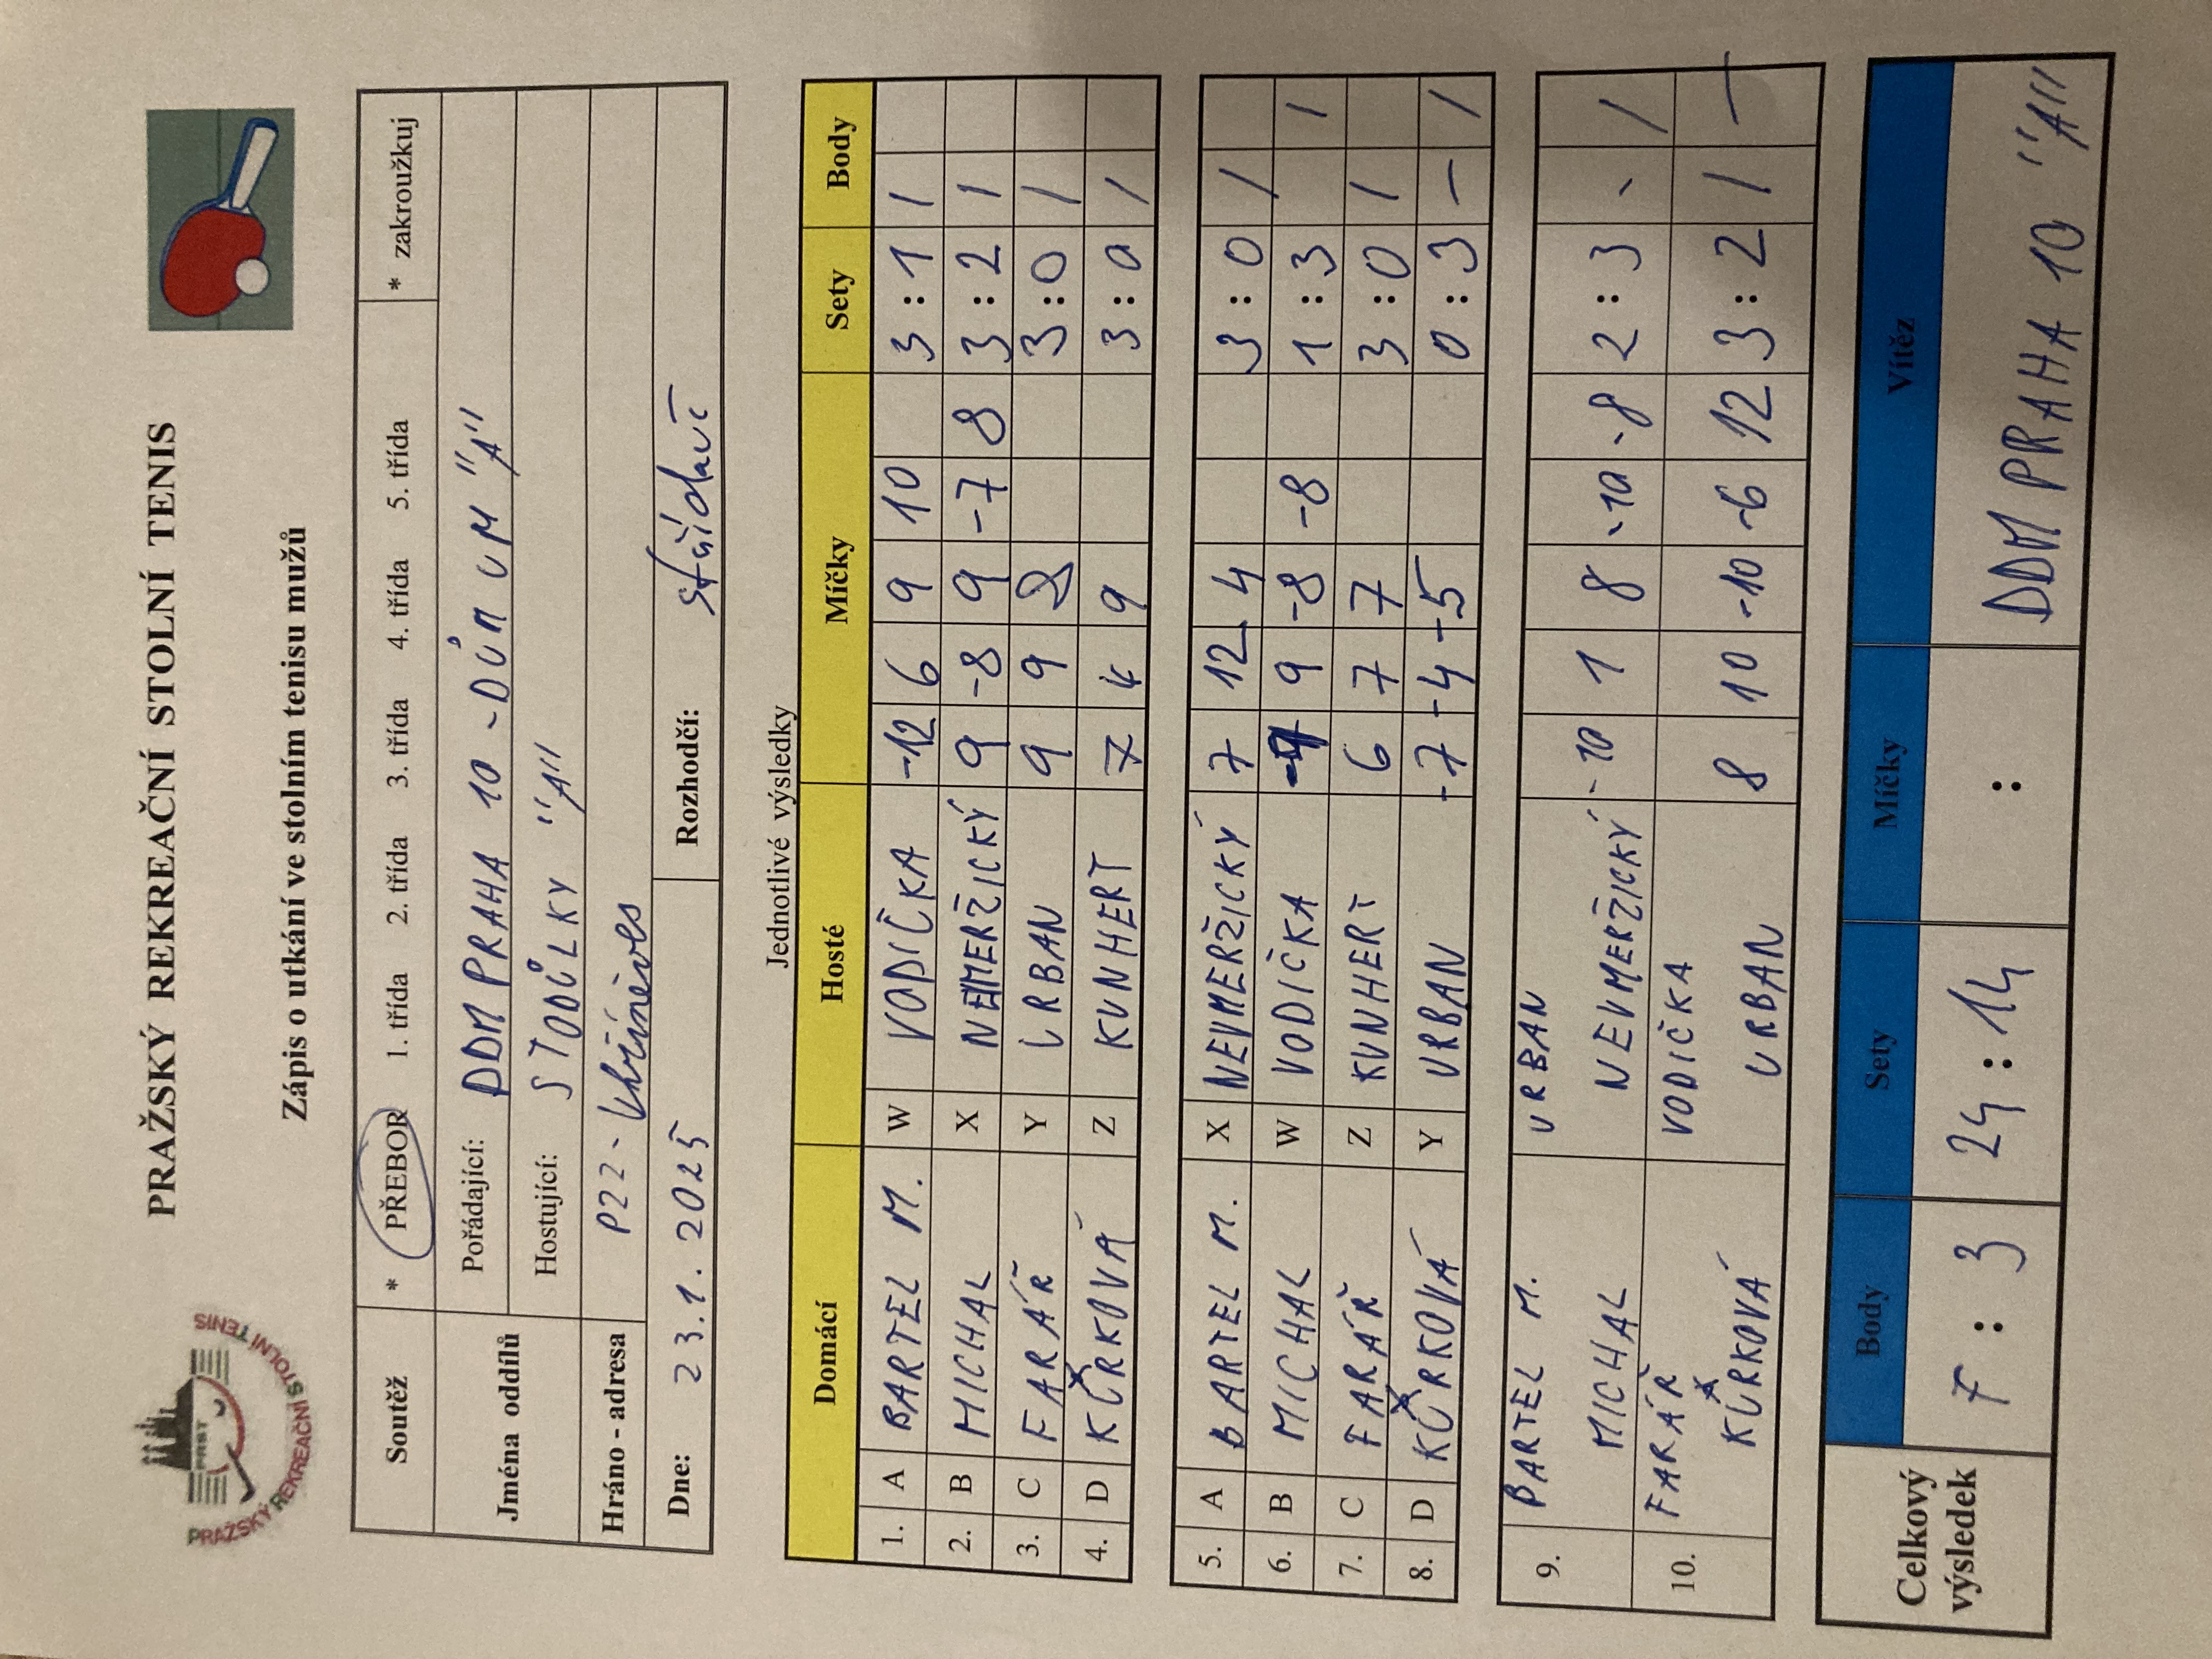 PRAŽSKÝ REKREAČNÍ STOLNÍ TENIS
PRST
PRAŽSKÝ REKREAČNÍ STOLNÍ TENIS
Zápis o utkání ve stolním tenisu mužů
Soutěž * PŘEBOR 1. třída 2. třída 3. třída 4. třída 5. třída * zakroužkuj
Jména oddílů Pořádající: DDM PRAHA 10 - DŮM UM "A"
Hostující: STODŮLKY "A"
Hráno - adresa P22 - Uhříněves
Dne: 23.1.2025 Rozhodčí: střídaví
Jednotlivé výsledky
Domácí Hosté Míčky Sety Body
1. A BARTEL M. W VODIČKA -12 6 9 10 3 : 1 /
2. B MICHAL X NEMERŽICKÝ 9 -8 9 -7 8 3 : 2 1
3. C FARÁŘ Y URBAN 9 9 8 3 : 0 /
4. D KŮRKOVÁ Z KUNHERT 7 4 9 3 : 0 /
5. A BARTEL M. X NEVMERŽICKÝ 7 12 4 3 : 0 /
6. B MICHAL W VODIČKA 9 -8 -8 1 : 3 /
7. C FARÁŘ Z KUNHERT 6 7 7 3 : 0 /
8. D KŮRKOVÁ Y URBAN -7 -4 -5 0 : 3 – /
9. BARTEL M. URBAN
MICHAL NEVMERŽICKÝ -10 1 8 -10 -8 2 : 3 - /
10. FARÁŘ VODIČKA
KŮRKOVÁ URBAN 8 10 -10 -6 12 3 : 2 / –
Celkový výsledek
Body Sety Míčky Vítěz
7 : 3 24 : 14 : DDM PRAHA 10 "A"